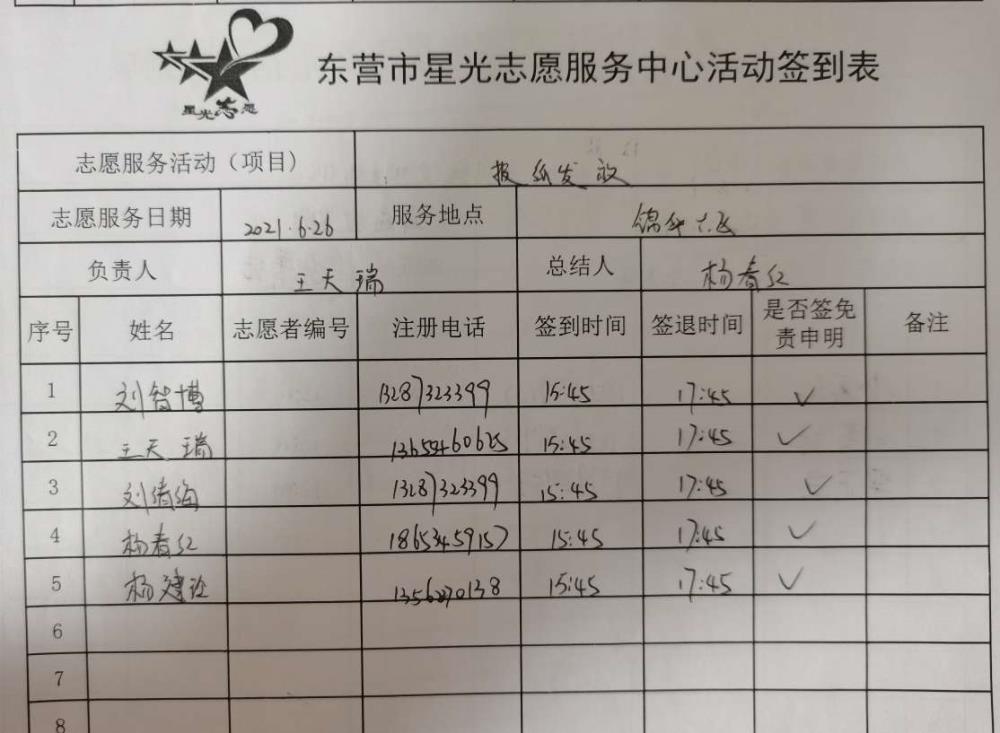 星光志愿
东营市星光志愿服务中心活动签到表
志愿服务活动（项目） 报纸发放
志愿服务日期 2021.6.26 服务地点 锦华六区
负责人 王天瑞 总结人 杨春红
序号 姓名 志愿者编号 注册电话 签到时间 签退时间 是否签免责申明 备注
1 刘智博 13287323399 15:45 17:45 ✓
2 王天瑞 15:45 17:45 ✓
3 刘倩 13287323399 15:45 17:45 ✓
4 杨春红 18653459157 15:45 17:45 ✓
5 杨建 15:45 17:45 ✓
6
7
8